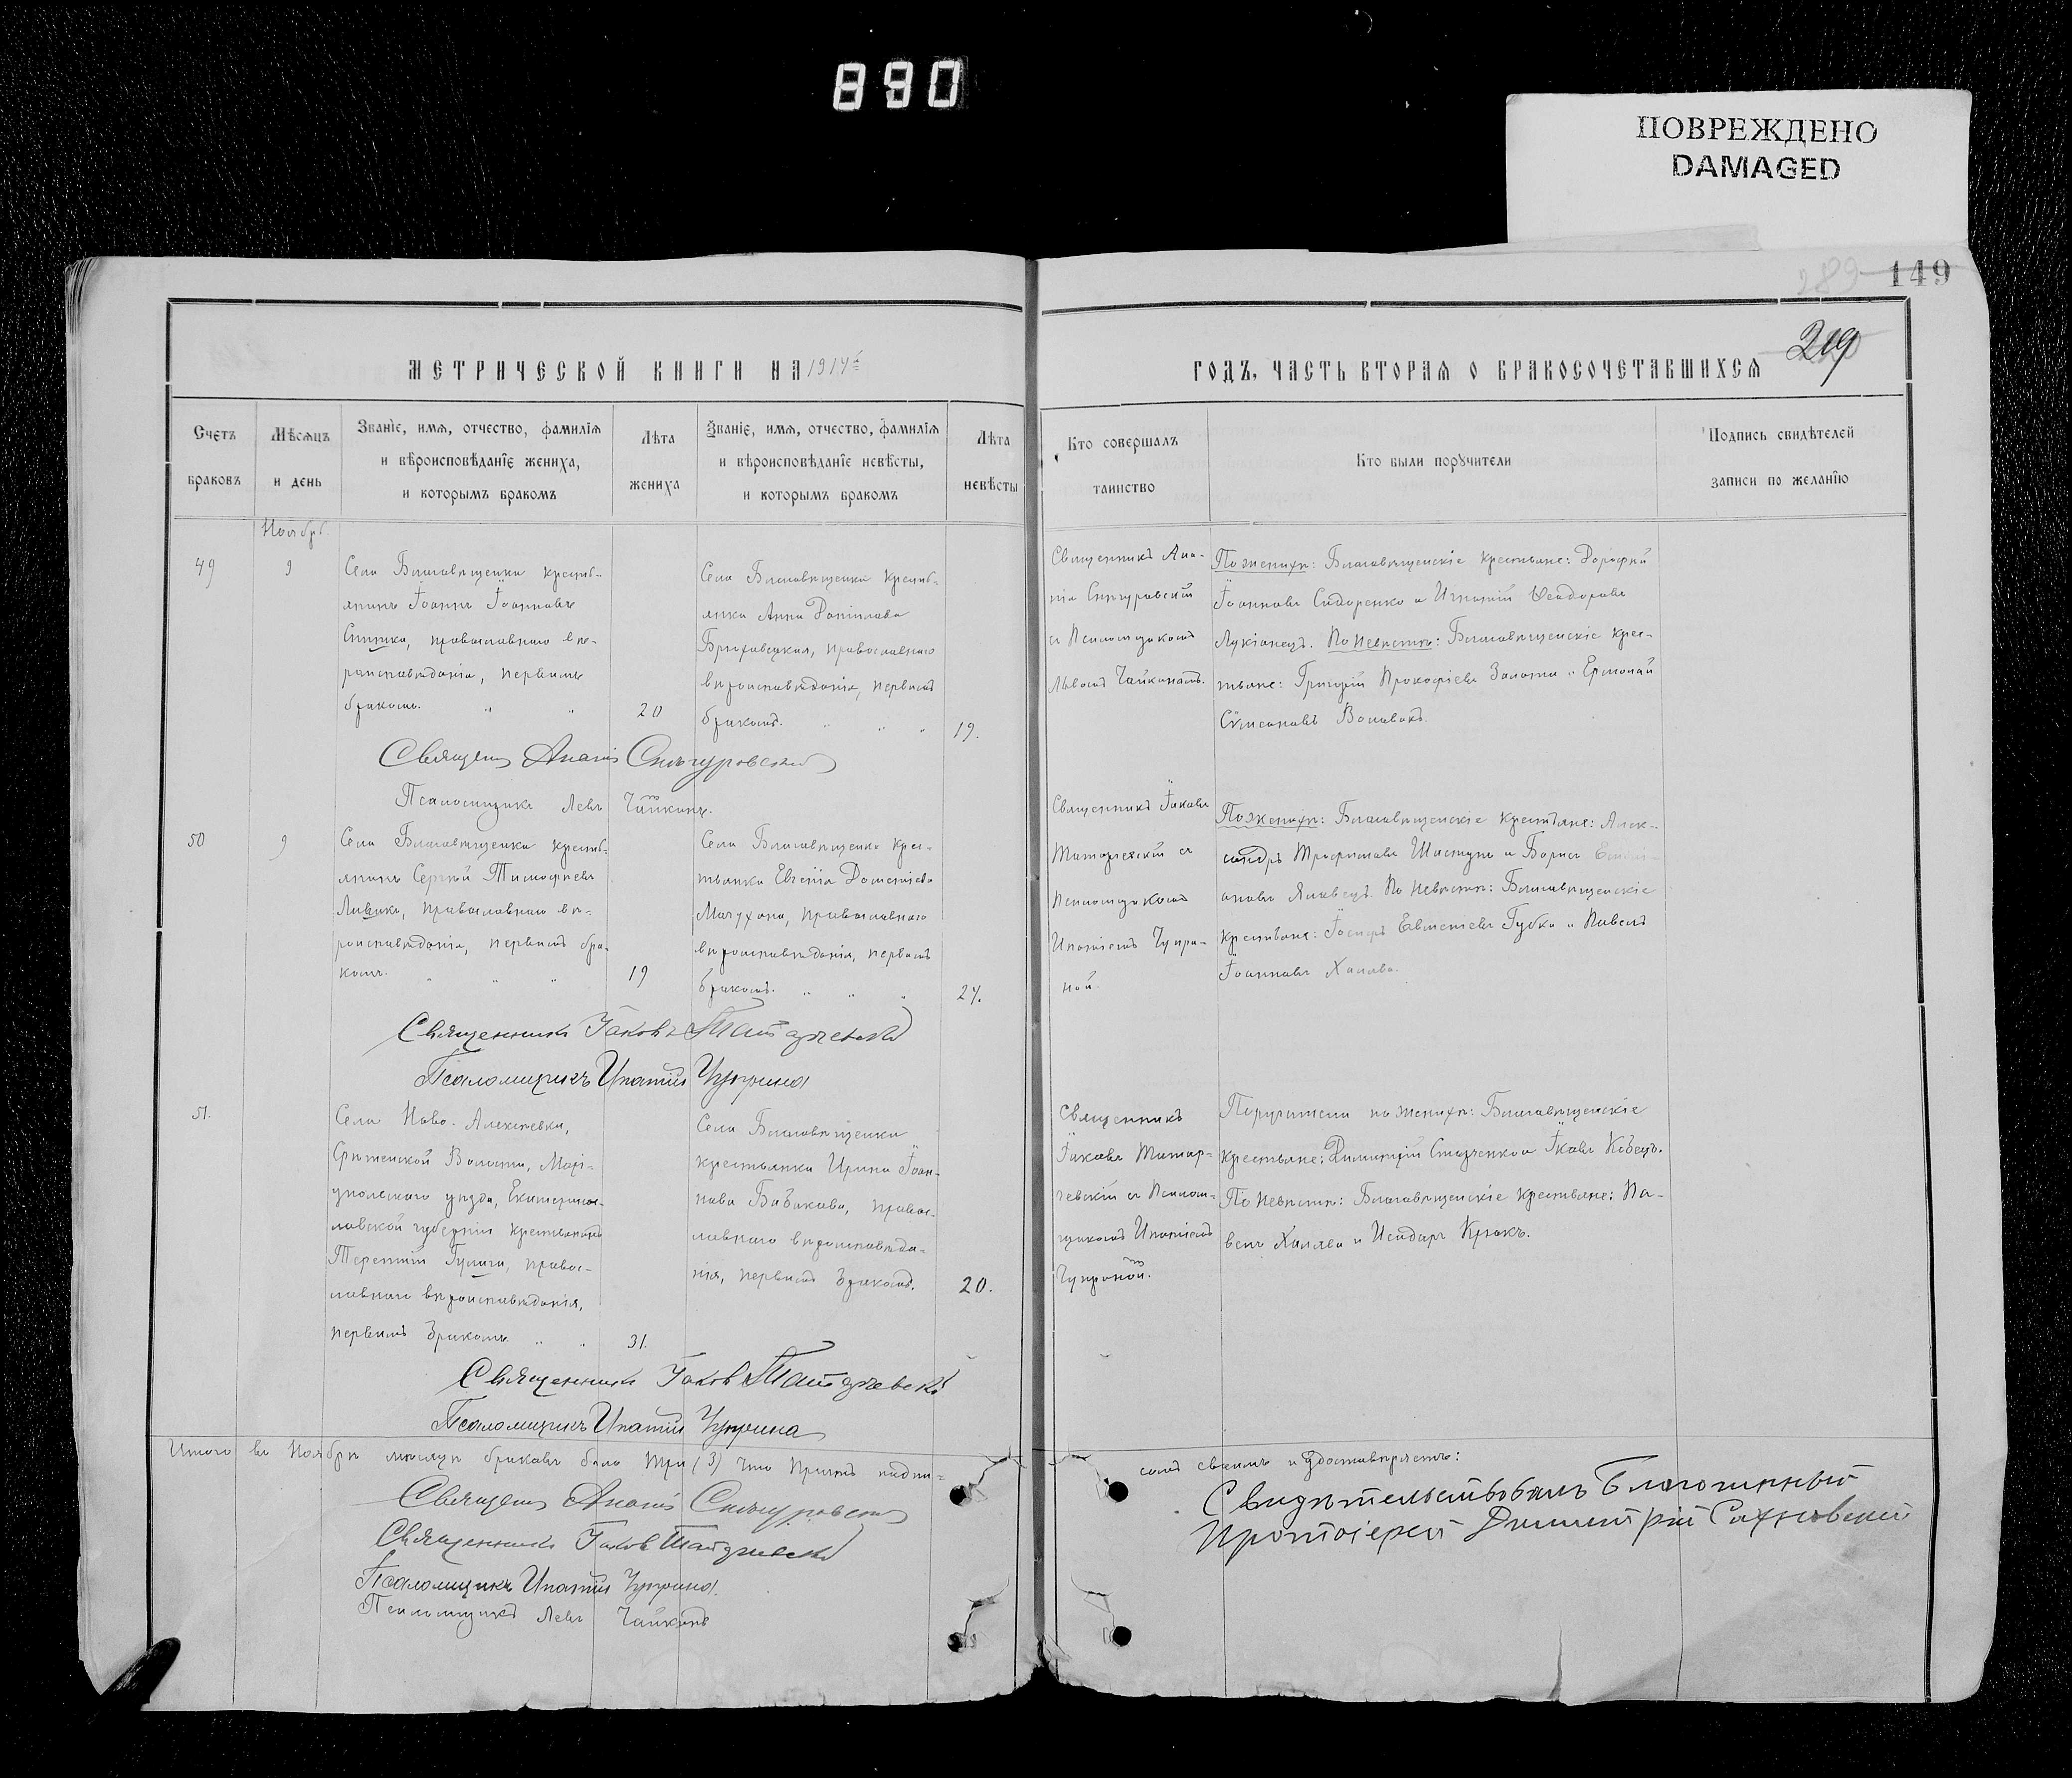 890
ПОВРЕЖДЕНО
DAMAGED
149
289
219
МЕТРИЧЕСКОЙ КНИГИ НА 1914й
ГОДЪ, ЧАСТЬ ВТОРАЯ О БРАКОСОЧЕТАВШИХСЯ
Счетъ
браковъ
Мѣсяцъ
и день
Званіе, имя, отчество, фамилія
и вѣроисповѣданіе жениха,
и которымъ бракомъ
Лѣта
жениха
Званіе, имя, отчество, фамилія
и вѣроисповѣданіе невѣсты,
и которымъ бракомъ
Лѣта
невѣсты
Кто совершалъ
таинство
Кто были поручители
Подпись свидѣтелей
записи по желанію
Ноябрь
49
9
Села Благовѣщенки крестья-
янинъ Іоаннъ Іоанновъ
православнаго вѣ-
роисповѣданія, первымъ
бракомъ. " "
20
Села Благовѣщенки кресть-
янка Анна Данілова
Брюховецкая, православнаго
вѣроисповѣданія, первымъ
бракомъ. " " "
19.
Священникъ Ана-
нія Снѣгуровскій
съ Псаломщикомъ
Львомъ Чайкинымъ.
По женихѣ: Благовѣщенскіе крестьяне: Дорофей
Іоанновъ Сидоренко и Игнатій Ѳеодоровъ
Лукіанецъ. По невѣстѣ: Благовѣщенскіе крес-
тьяне: Григорій Прокофіевъ Золота и Ермолай
Сѵмеоновъ Воловикъ.
Священ Ананія Снѣгуровскій
Псаломщикъ Левъ Чайкинъ.
50
9
Села Благовѣщенки кресть-
янинъ Сергѣй Тимофѣевъ
православнаго вѣ-
роисповѣданія, первымъ бра-
комъ. " " "
19
Села Благовѣщенки крес-
тьянка Евгенія Дометіева
православнаго
вѣроисповѣданія, первымъ
бракомъ. " " "
Священникъ Іаковъ
Татарчевскій съ
Псаломщикомъ
Ипатіемъ Чупри-
ной.
По женихѣ: Благовѣщенскіе крестьяне: Алек-
сандръ Трофимовъ Шастунъ и Борисъ
ановъ Яковецъ. По невѣстѣ: Благовѣщенскіе
крестьяне: Евметіевъ Губка и Павелъ
Іоанновъ Халява.
Священникъ Іаковъ Татарчевскій
Псаломщикъ Ипатій Чуприна
51.
Села Ново-Алексѣевки,
Срѣтенской Волости, Марі-
упольскаго уѣзда, Екатеринос-
лавской губерніи крестьянинъ
Терентій Гулига, правос-
лавнаго вѣроисповѣданія,
первымъ бракомъ " "
31.
Села Благовѣщенки
крестьянка Ирина Іоан-
нова Бабакова, правос-
лавнаго вѣроисповѣда-
нія, первымъ бракомъ.
20.
Священникъ
Іаковъ Татар-
чевскій съ Псалом-
щикомъ Ипатіемъ
Чуприной.
Поручители по женихѣ: Благовѣщенскіе
крестьяне: Димитрій и Іаковъ Кобецъ.
По невѣстѣ: Благовѣщенскіе крестьяне: Па-
велъ Халява и Исидоръ Крюкъ.
Священникъ Іаковъ Татарчевскій
Псаломщикъ Ипатій Чуприна
Итого въ Ноябрѣ мѣсяцѣ браковъ было три (3) что Причтъ подпи-
сомъ своимъ и удостовѣряетъ:
Священ Ананія Снѣгуровскій
Священникъ Іаковъ Татарчевскій
Псаломщикъ Ипатій Чуприна.
Псаломщикъ Левъ Чайкинъ
Свидѣтельствовалъ Благочинный
Протоіерей Димитрій Сахновскій